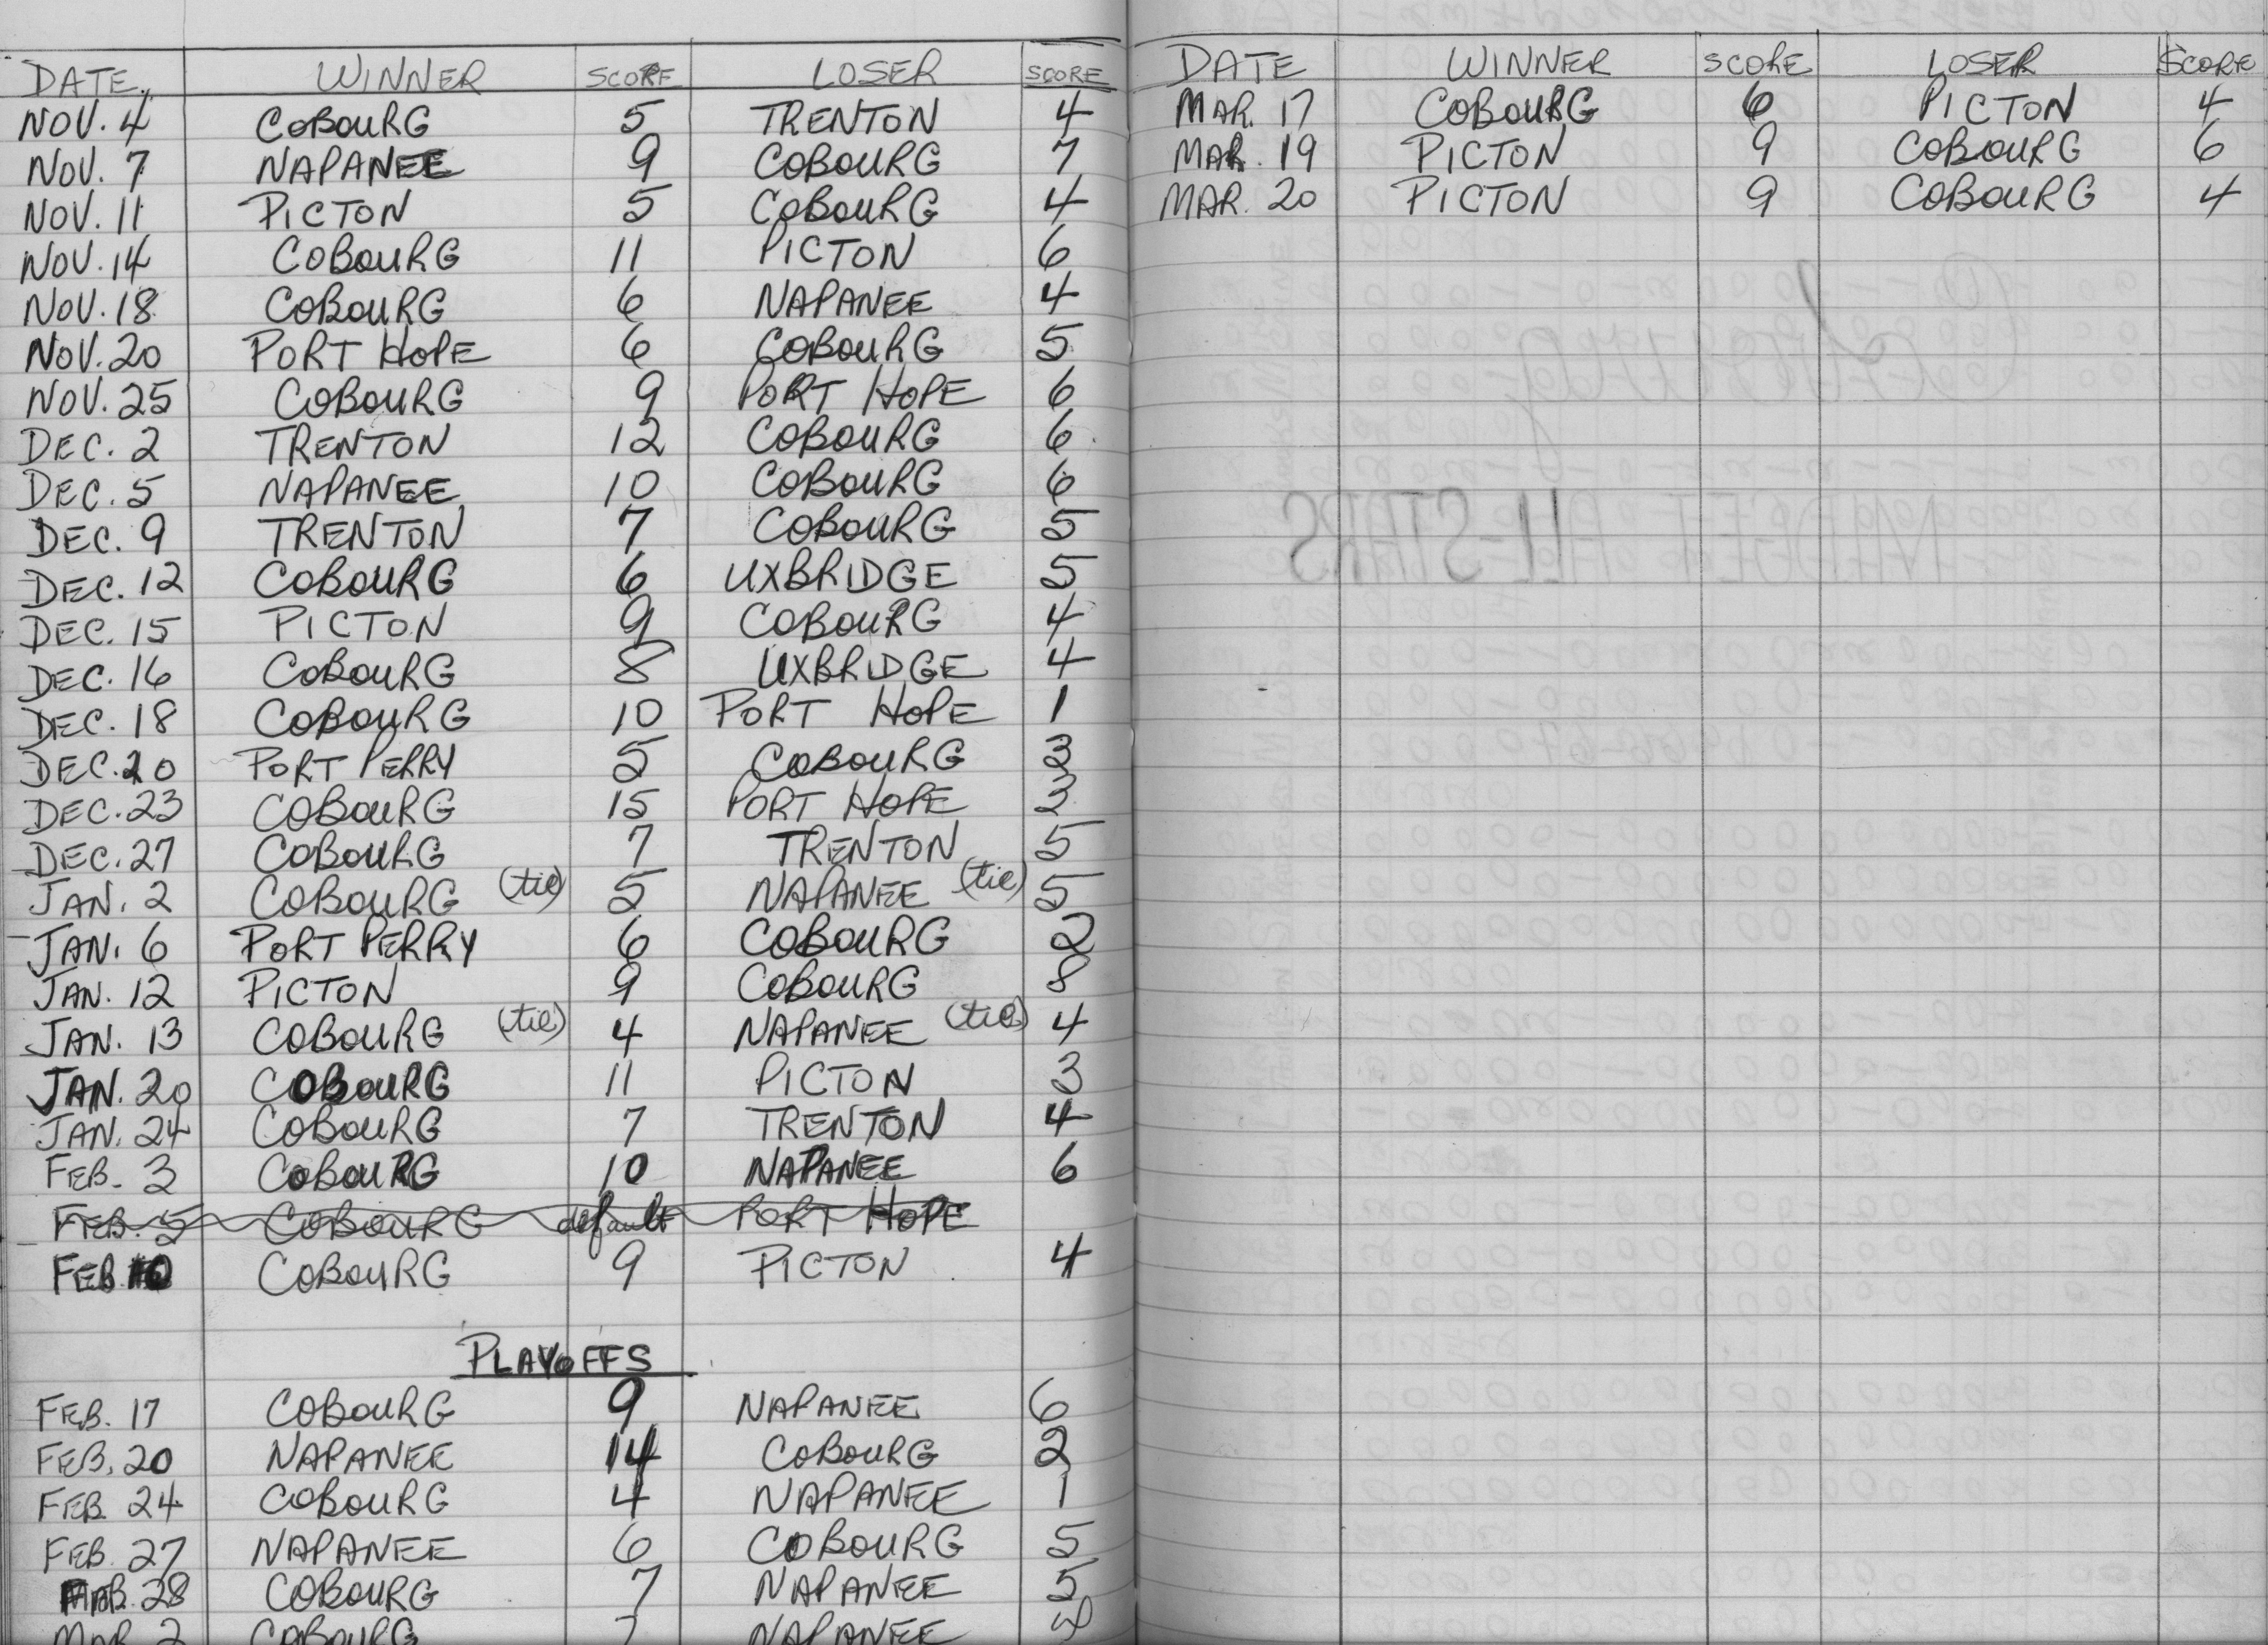 DATE WINNER SCORE LOSER SCORE
NOV. 4 COBOURG 5 TRENTON 4
NOV. 7 NAPANEE 9 COBOURG 7
NOV. 11 PICTON 5 COBOURG 4
NOV. 14 COBOURG 11 PICTON 6
NOV. 18 COBOURG 6 NAPANEE 4
NOV. 20 PORT HOPE 6 COBOURG 5
NOV. 25 COBOURG 9 PORT HOPE 6
DEC. 2 TRENTON 12 COBOURG 6
DEC. 5 NAPANEE 10 COBOURG 6
DEC. 9 TRENTON 7 COBOURG 5
DEC. 12 COBOURG 6 UXBRIDGE 5
DEC. 15 PICTON 9 COBOURG 4
DEC. 16 COBOURG 8 UXBRIDGE 4
DEC. 18 COBOURG 10 PORT HOPE 1
DEC. 20 PORT PERRY 5 COBOURG 3
DEC. 23 COBOURG 15 PORT HOPE 3
DEC. 27 COBOURG 7 TRENTON 5
JAN. 2 COBOURG (tie) 5 NAPANEE (tie) 5
JAN. 6 PORT PERRY 6 COBOURG 2
JAN. 12 PICTON 9 COBOURG 8
JAN. 13 COBOURG (tie) 4 NAPANEE (tie) 4
JAN. 20 COBOURG 11 PICTON 3
JAN. 24 COBOURG 7 TRENTON 4
FEB. 3 COBOURG 10 NAPANEE 6
FEB. 5 COBOURG default PORT HOPE
FEB. 10 COBOURG 9 PICTON 4
PLAYOFFS
FEB. 17 COBOURG 9 NAPANEE 6
FEB. 20 NAPANEE 14 COBOURG 2
FEB. 24 COBOURG 4 NAPANEE 1
FEB. 27 NAPANEE 6 COBOURG 5
28 COBOURG 7 NAPANEE 5
MAR. 2 COBOURG 7 NAPANEE
DATE WINNER SCORE LOSER SCORE
MAR. 17 COBOURG 6 PICTON 4
MAR. 19 PICTON 9 COBOURG 6
MAR. 20 PICTON 9 COBOURG 4
MIDGET ALL-STARS